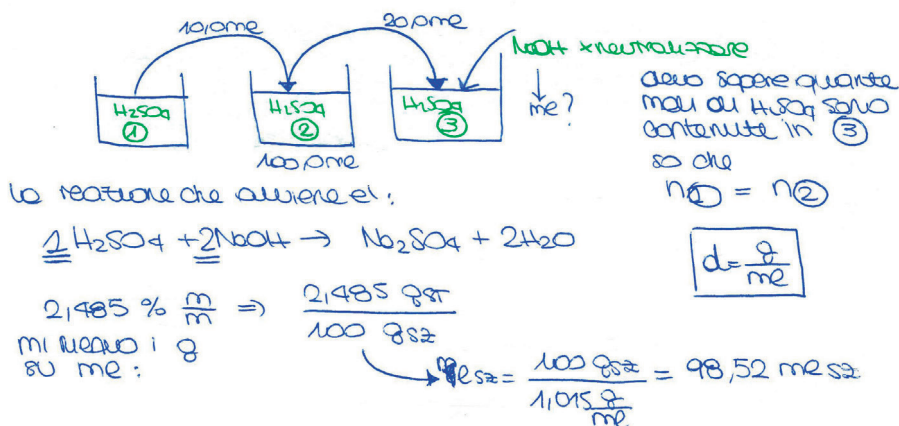 10,0ml 20,0ml
NaOH x neutralizzare
H2SO4 ① H2SO4 ② H2SO4 ③ ml?
100,0ml
devo sapere quante
moli di H2SO4 sono
contenute in ③
so che
n① = n②
la reazione che avviene e':
1 H2SO4 + 2 NaOH → Na2SO4 + 2H2O
d = g/ml
2,485 % m/m ⇒ 2,485 gst / 100 gsz
mi ricavo i g
su ml:
mlsz = 100 gsz / 1,015 g/ml = 98,52 ml sz